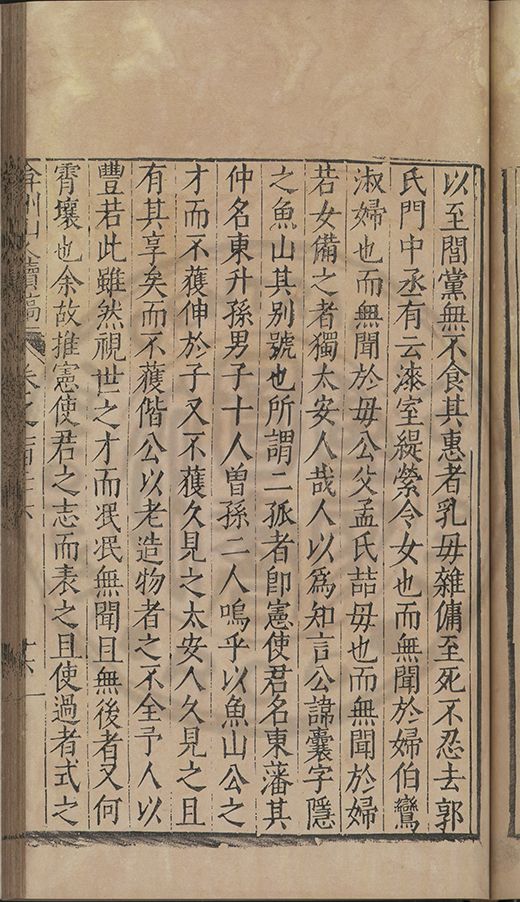 以至閭黨無不食其惠者乳毋雜傭至死不忍去郭
氏門中丞有云漆室緹縈令女也而無聞於婦伯鸞
淑婦也而無聞於毋公父孟氏喆毋也而無聞於婦
若女備之者獨太安人哉人以爲知言公諱囊字隱
之魚山其別號也所謂二孤者卽憲使君名東藩其
仲名東升孫男子十人曽孫二人嗚乎以魚山公之
才而不獲伸於子又不獲久見之太安人久見之且
有其享矣而不獲偕公以老造物者之不全予人以
豐若此雖然視世之才而泯泯無聞且無後者又何
霄壤也余故推憲使君之志而表之且使過者式之
弇州山人續稿 卷之百